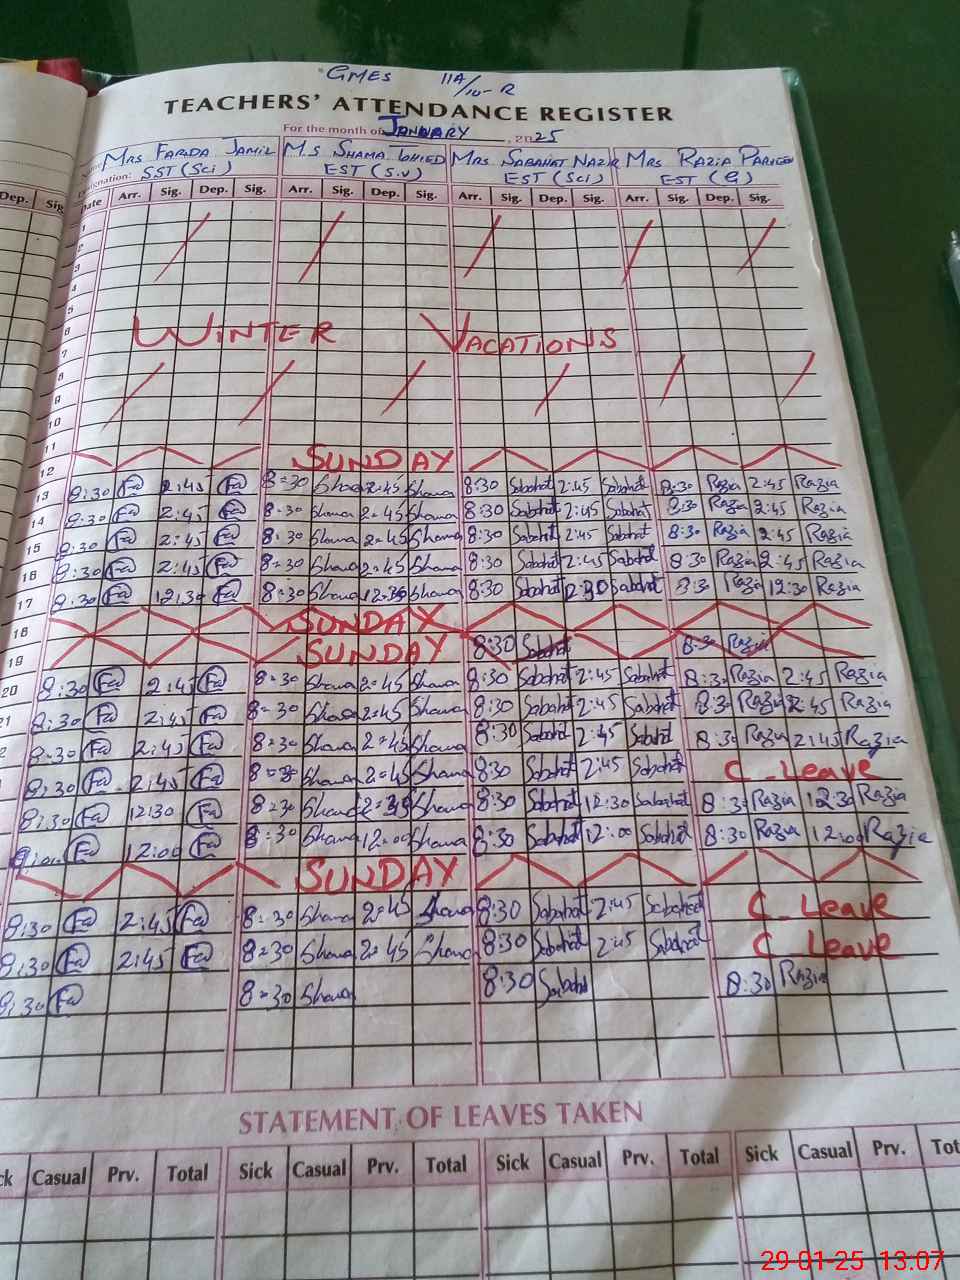 GMES 11A/10-R
TEACHERS' ATTENDANCE REGISTER
For the month of JANUARY, 2025
Mrs FARIDA JAMIL Ms SHAMA Mrs SABAHAT NAZIR Mrs RAZIA PARVEEN
Designation: SST (Sci) EST (S.V) EST (Sci) EST (G)
Dep. Sig. Date Arr. Sig. Dep. Sig. Arr. Sig. Dep. Sig. Arr. Sig. Dep. Sig. Arr. Sig. Dep. Sig.
1
2
3
4
5
6
WINTER VACATIONS
7
8
9
10
11
12 SUNDAY
13 8:30 Fa 2:45 Fa 8=30 Shama 2=45 Shama 8:30 Sabahat 2:45 Sabahat 8:30 Razia 2:45 Razia
14 8:30 Fa 2:45 Fa 8=30 Shama 2=45 Shama 8:30 Sabahat 2:45 Sabahat 8:30 Razia 2:45 Razia
15 8:30 Fa 2:45 Fa 8=30 Shama 2=45 Shama 8:30 Sabahat 2:45 Sabahat 8:30 Razia 2:45 Razia
16 8:30 Fa 2:45 Fa 8=30 Shama 2=45 Shama 8:30 Sabahat 2:45 Sabahat 8:30 Razia 2:45 Razia
17 8:30 Fa 12:30 Fa 8=30 Shama 12=30 Shama 8:30 Sabahat 12:30 Sabahat 8:30 Razia 12:30 Razia
18 SUNDAY
19 SUNDAY 8:30 Sabahat 8:30 Razia
20 8:30 Fa 2:45 Fa 8=30 Shama 2=45 Shama 8:30 Sabahat 2:45 Sabahat 8:30 Razia 2:45 Razia
21 8:30 Fa 2:45 Fa 8=30 Shama 2=45 Shama 8:30 Sabahat 2:45 Sabahat 8:30 Razia 2:45 Razia
2 8:30 Fa 2:45 Fa 8=30 Shama 2=45 Shama 8:30 Sabahat 2:45 Sabahat 8:30 Razia 2:45 Razia
8:30 Fa 2:45 Fa 8=30 Shama 2=45 Shama 8:30 Sabahat 2:45 Sabahat C-Leave
8:30 Fa 12:30 Fa 8=30 Shama 12=30 Shama 8:30 Sabahat 12:30 Sabahat 8:30 Razia 12:30 Razia
Fa 12:00 Fa 8=30 Shama 12=00 Shama 8:30 Sabahat 12:00 Sabahat 8:30 Razia 12:00 Razia
SUNDAY
8:30 Fa 2:45 Fa 8=30 Shama 2=45 Shama 8:30 Sabahat 2:45 Sabahat C-Leave
8:30 Fa 2:45 Fa 8=30 Shama 2=45 Shama 8:30 Sabahat 2:45 Sabahat C-Leave
8:30 Fa 8=30 Shama 8:30 Sabahat 8:30 Razia
STATEMENT OF LEAVES TAKEN
Casual Prv. Total Sick Casual Prv. Total Sick Casual Prv. Total Sick Casual Prv.
29-01-25 13.07